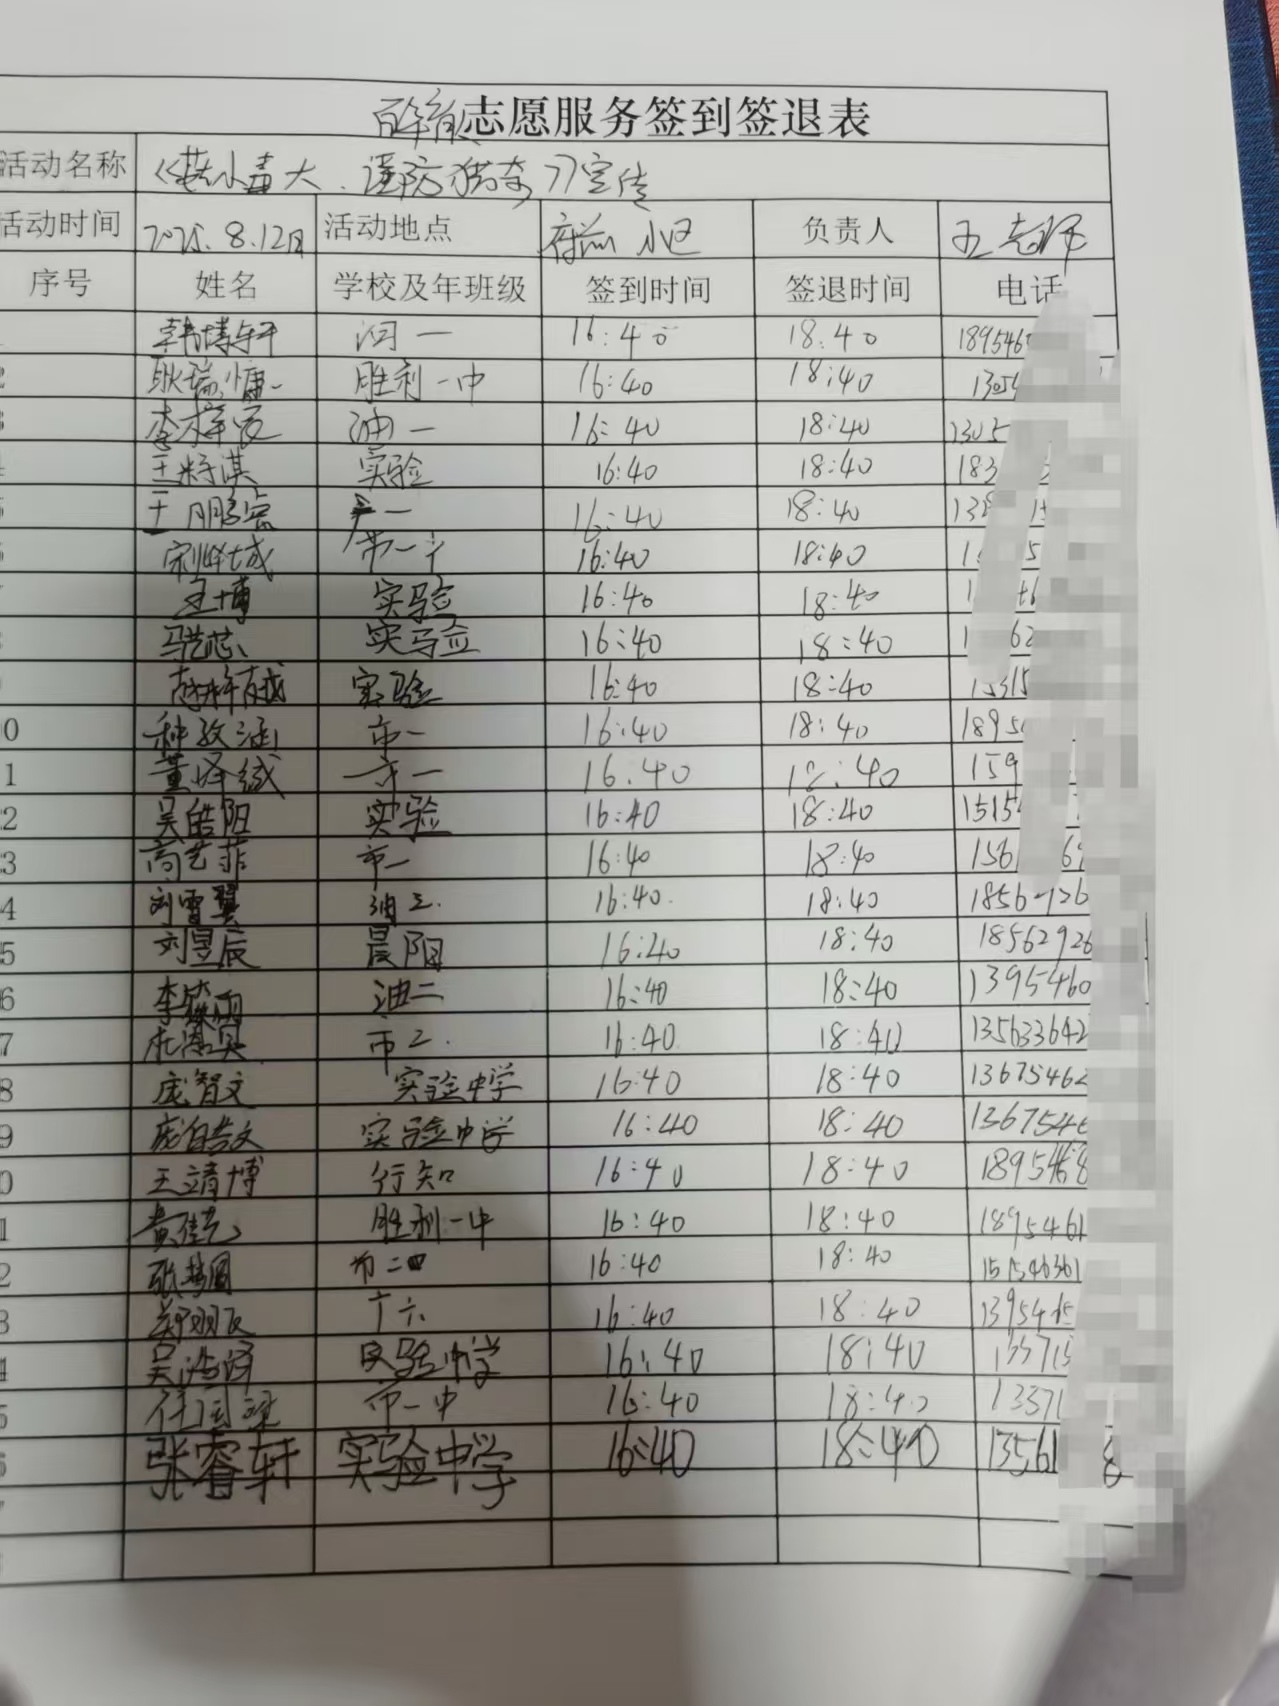 志愿服务签到签退表
活动名称 《蚊小毒大、谨防猎奇》宣传
活动时间 2025.8.12日 活动地点 府前小区 负责人 王老师
序号 姓名 学校及年班级 签到时间 签退时间 电话
韩博轩 河一 16:40 18.40 189546
2 耿瑞慷 胜利一中 16:40 18:40 1305
李梓 油一 16:40 18:40 1305
王梓淇 实验 16:40 18:40 183
王鹏宸 一 16:40 18:40 13
宋烨城 市一 16:40 18:40 1 5
王博 实验 16:40 18:40 1
马艺芯 实验 16:40 18:40 1 62
实验 16:40 18:40 15315
0 种孜涵 市一 16:40 18:40 1895
1 董泽 市一 16.40 18:40 159
2 吴皓阳 实验 16:40 18:40 1515
3 高艺菲 市一 16:40 18:40 156
4 刘雪翼 油三. 16:40. 18:40 1856
5 刘昱辰 晨阳 16:40 18:40 18562926
6 李 雨 油二 16:40 18:40 1395460
7 杜 昊 市2. 16:40. 18:40 135633642
8 庞智文 实验中学 16:40 18:40 13675462
9 庞 文 实验中学 16:40 18:40 136754
0 王靖博 行知 16:40 18:40 1895468
1 黄佳艺 胜利一中 16:40 18:40 1895461
2 张 圆 市二四 16:40 18:40 151546361
3 郑 六 16:40 18:40 13954
4 吴浩泽 实验中学 16:40 18:40 133715
5 任国梁 市一中 16:40 18:40 13371
张睿轩 实验中学 16:40 18:40 13561 8